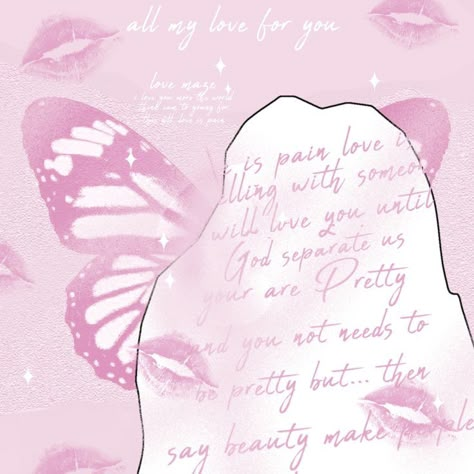 all my love for you
love maze
i love you more the world
is pain love is
elling with someon
will love you until
God separate us
your are Pretty
and you not needs to
be pretty but... then
say beauty make people